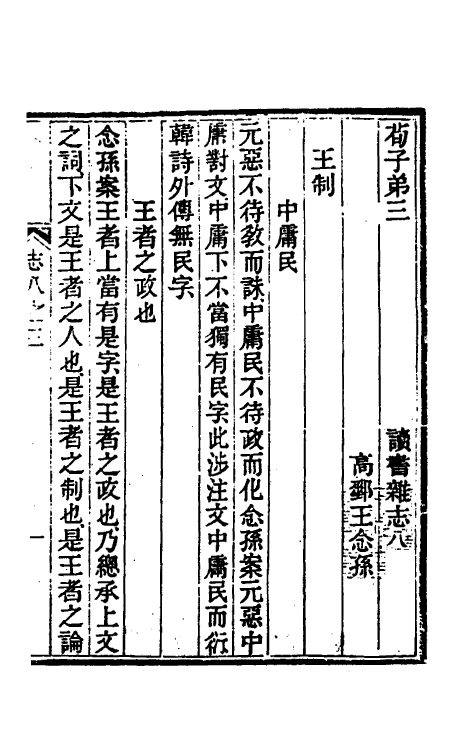 荀子弟三
讀書雜志八
高郵王念孫
王制
中庸民
元惡不待教而誅中庸民不待政而化念孫案元惡中
庸對文中庸下不當獨有民字此涉注文中庸民而衍
韓詩外傳無民字
王者之政也
念孫案王者上當有是字是王者之政也乃總承上文
之詞下文是王者之人也是王者之制也是王者之論
志八之三
一